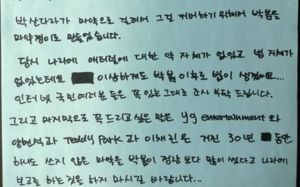 박산다라가 마약으로 걸려서 그걸 커버하기 위해서 박봄을
마약쟁이로 만들었습니다.
당시 나라에 애더럴에 대한 약 자체가 없었고 법 자체가
없었는데요 이상하게도 박봄 이후로 법이 생겼네요...
인터넷 국민여러분들은 꼭 있는그대로 조사 부탁 드립니다.
그리고 마지막으로 꼭 드리고 싶은 말은 yg entertainment 와
양현석과 Teddy Park 과 이채린은 거진 30년 동안
하나도 쓰지 않은 마약을 박봄이 정량 보다 많이 썼다고 나라에
보고를 하는 짓을 하지 마시길 바랍니다...